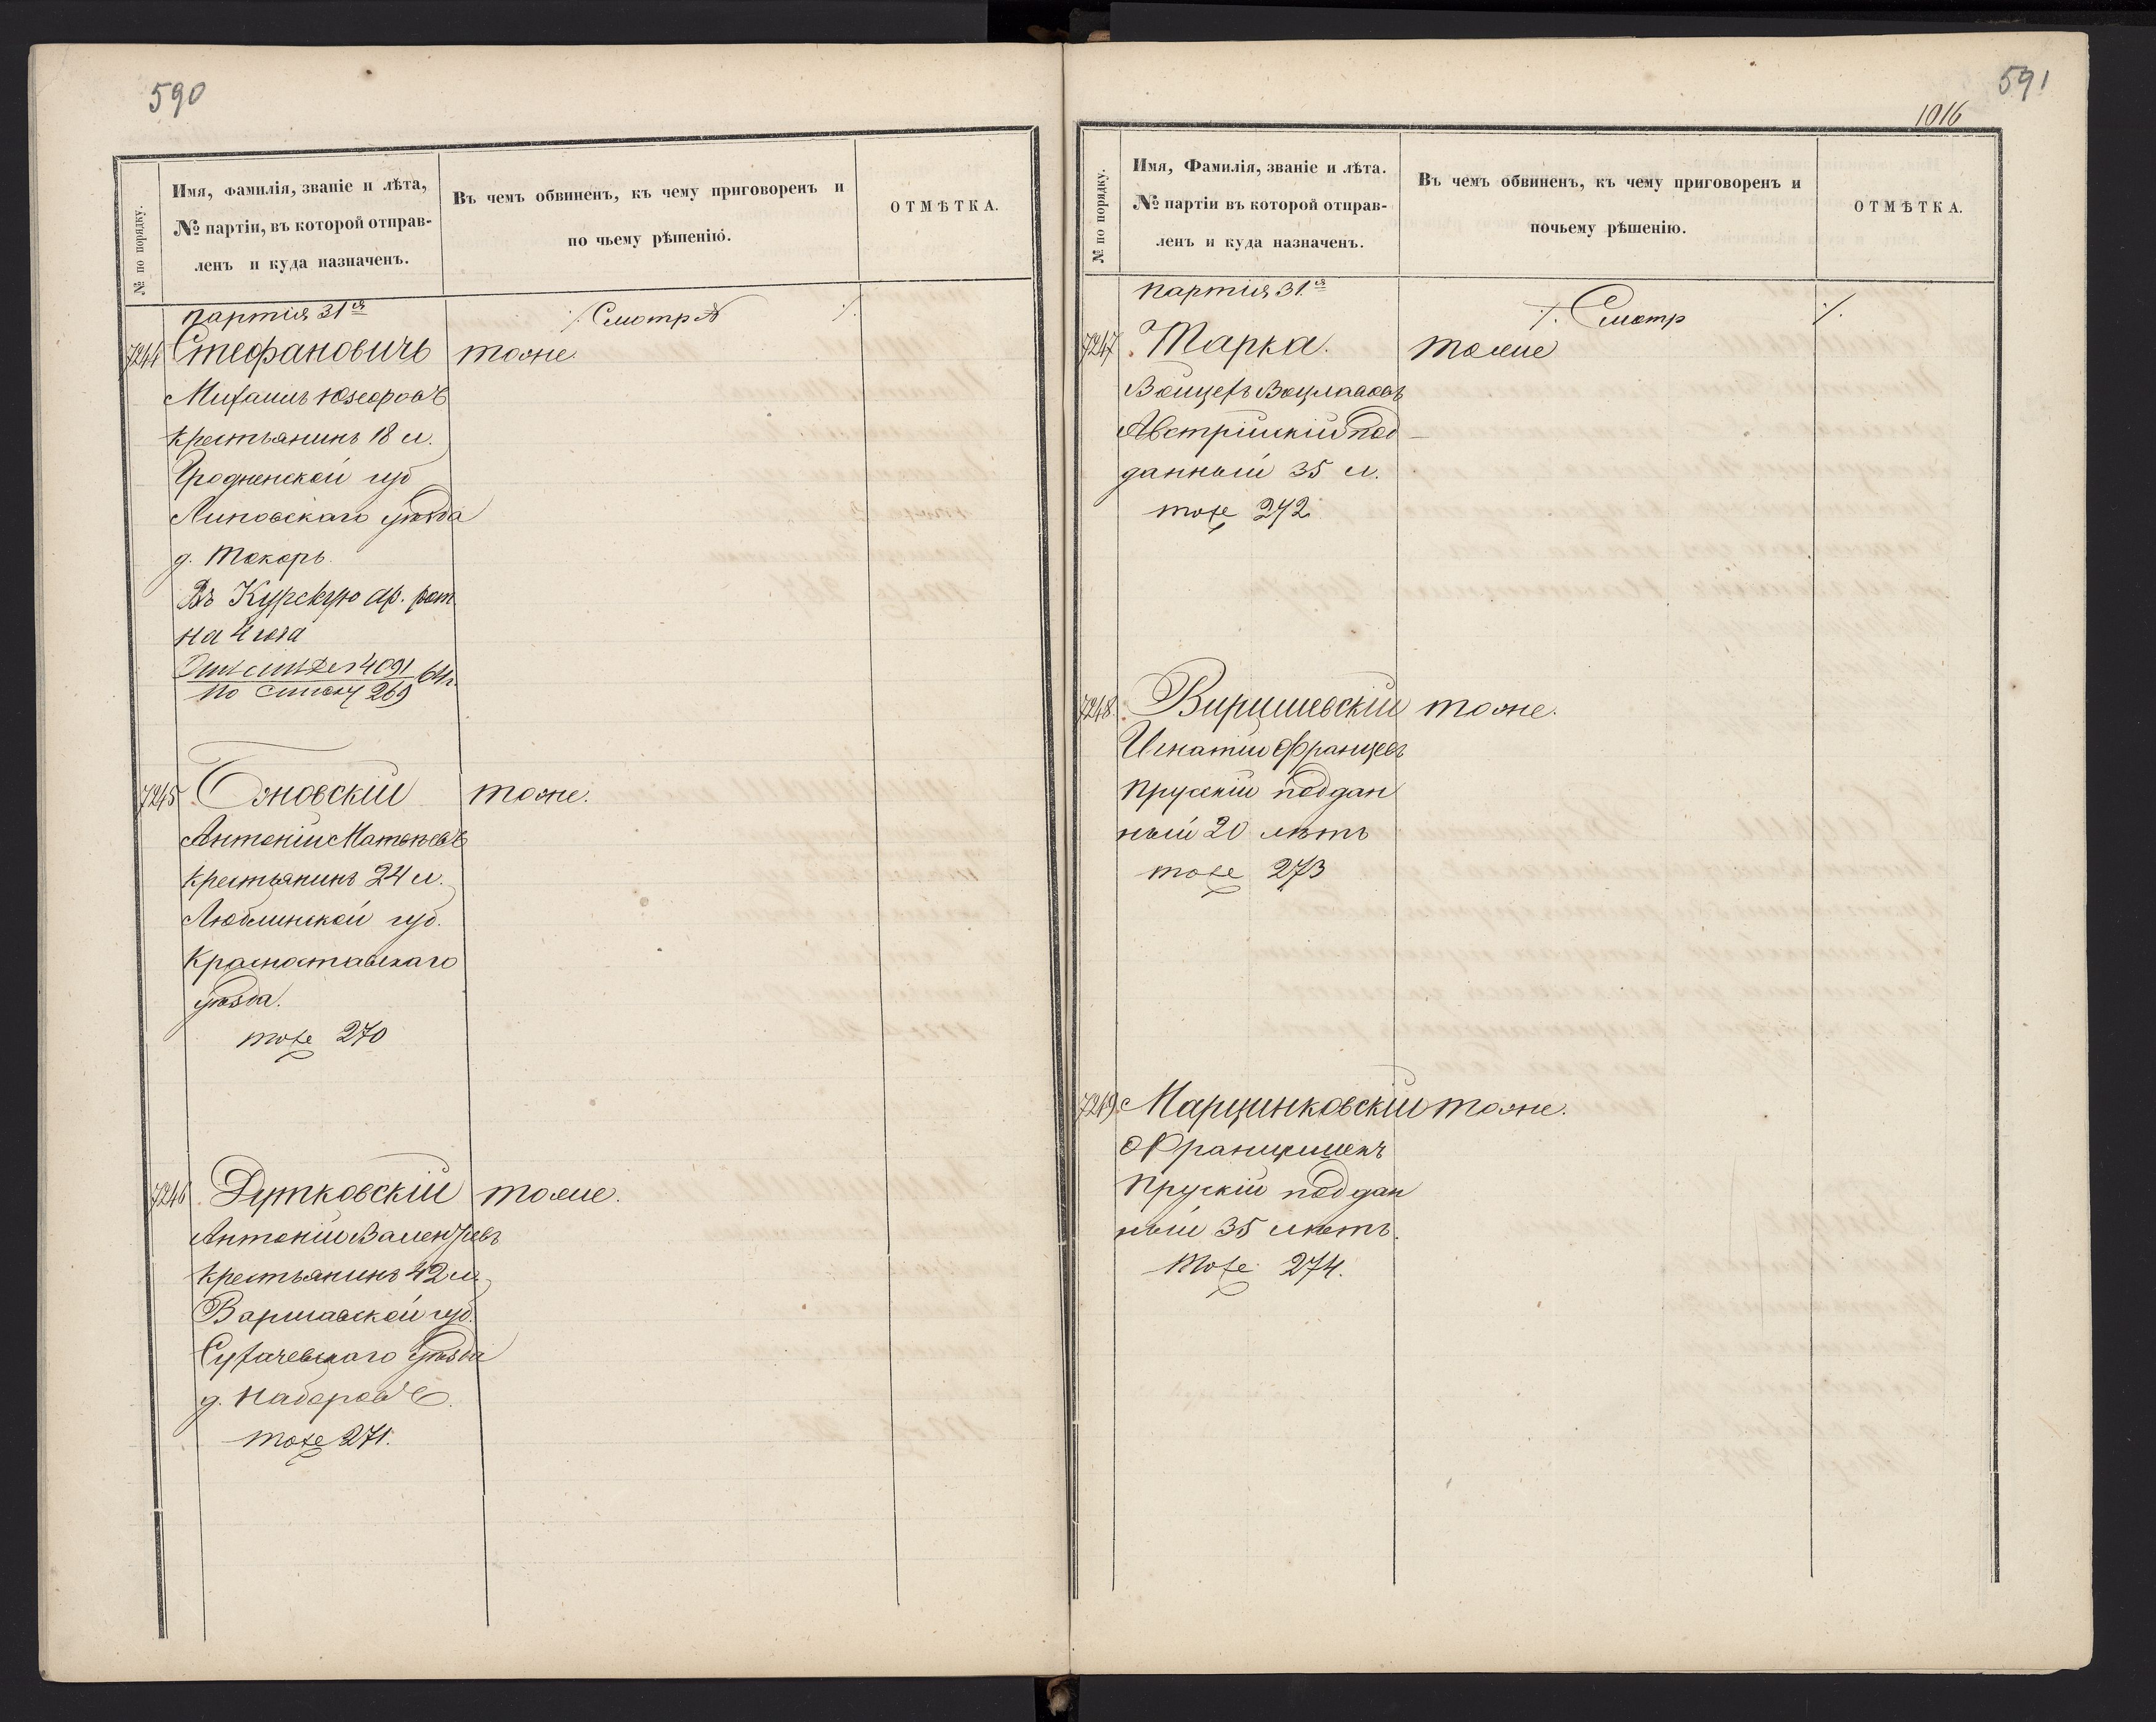 590
№ по порядку.
Имя, фамилія, званіе и лѣта,
№ партіи, въ которой отправ-
ленъ и куда назначенъ.
Въ чемъ обвиненъ, къ чему приговоренъ и
по чьему рѣшенію.
ОТМѢТКА.
партія 31я
·/. Смотр ·/.
7244 Стефановичъ тоже.
Михаилъ Юзефовъ
крестьянинъ 18 л.
Гродненской губ
Липовскаго уѣзда
д. Токоръ
Въ Курскую ар. рот
на 4 года
4091
по списку 269
7245 тоже.
Антоній Матвѣевъ
крестьянинъ 24 л.
Люблинской губ.
Красноставскаго
уѣзда.
тоже 270
7246 Дутковскій тоже.
Антоній Валентьевъ
крестьянинъ 42 л.
Варшавской губ.
Сухачевскаго уѣзда
д. Надоровъ.
тоже 271.
591
1016
№ по порядку.
Имя, Фамилія, званіе и лѣта.
№ партіи въ которой отправ-
ленъ и куда назначенъ.
Въ чемъ обвиненъ, къ чему приговоренъ и
почьему рѣшенію.
ОТМѢТКА.
партія 31.я
·/. Смотр ·/.
7247 Тарка. тоже
Войцехъ Вацлавовъ
Австрійскій под-
данный 35 л.
тоже 272
7248. Виришевскій тоже.
Игнатій Францевъ
Прусскій поддан
ный 20 лѣтъ
тоже 273
7249. Марцинковскій тоже.
Францишекъ
Прускій поддан
ный 35 лѣтъ.
Тоже 274.